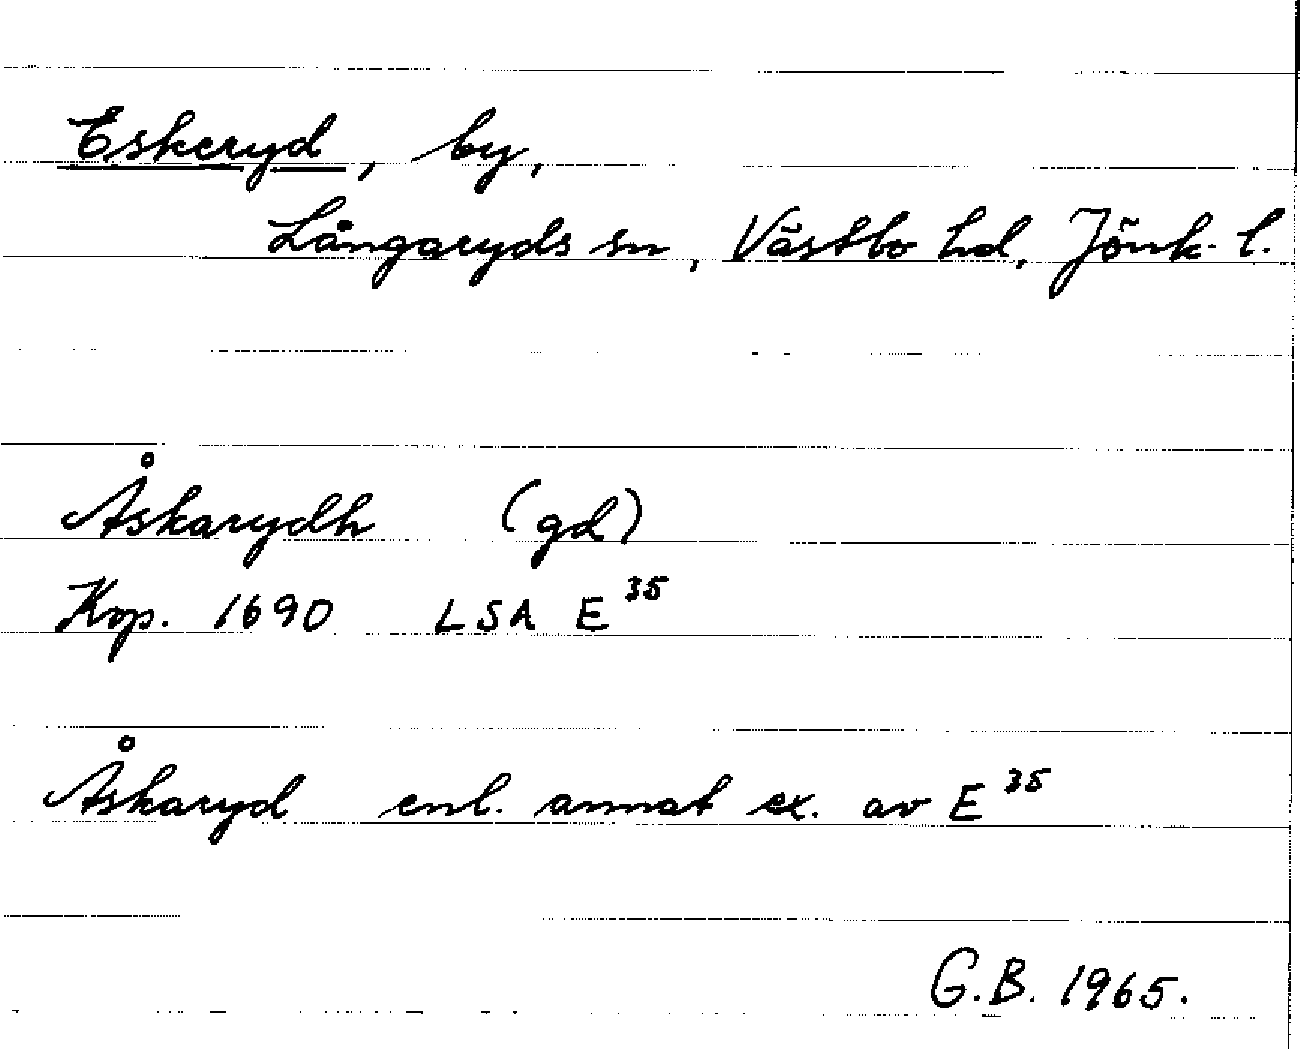 Eskeryd, by,
Långaryds sn, Västbo hd, Jönk. l.
Åskarydh (gd)
Kop. 1690 LSA E 35
Åskaryd enl. annat ex. av E 35
G.B. 1965.